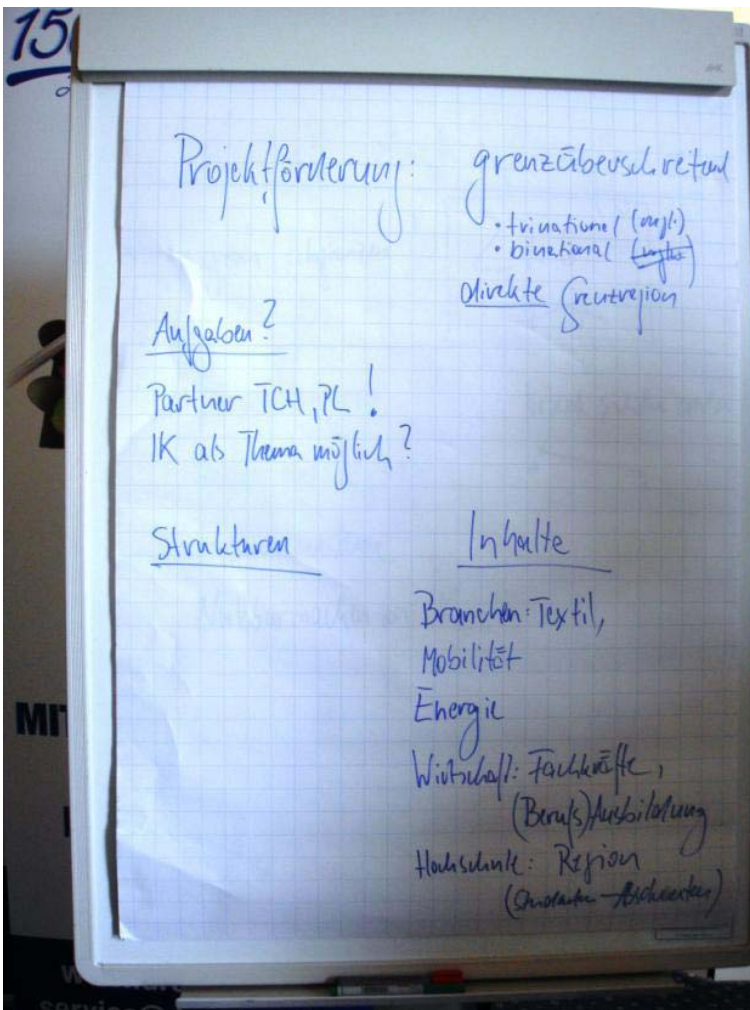 150
Projektförderung: grenzüberschreitend
• trinational (mögl.)
• binational
direkte Grenzregion
Aufgaben?
Partner TCH, PL!
IK als Thema möglich?
Strukturen
Inhalte
Branchen: Textil,
Mobilität
Energie
Wirtschaft: Fachkräfte,
(Berufs)Ausbildung
Hochschule: Region
(Studenten → Absolventen)
MIT